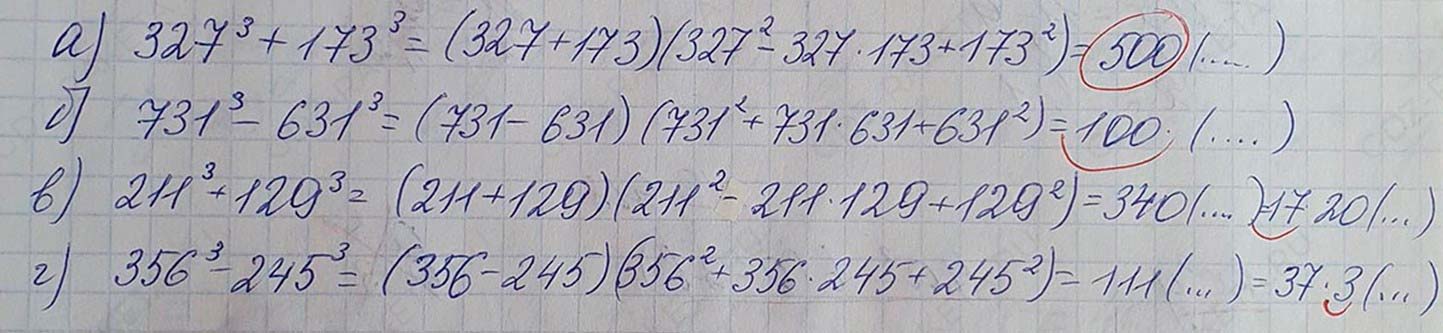 а) 327³ + 173³ = (327+173)(327² - 327·173+173²) = 500 (.....)
б) 731³ - 631³ = (731 - 631) (731² + 731·631+631²) = 100· (....)
в) 211³ + 129³ = (211+129)(211² - 211·129+129²) = 340 (....) = 17 20 (...)
г) 356³ - 245³ = (356 - 245)(356² + 356·245 + 245²) = 111 (...) = 37·3 (...)